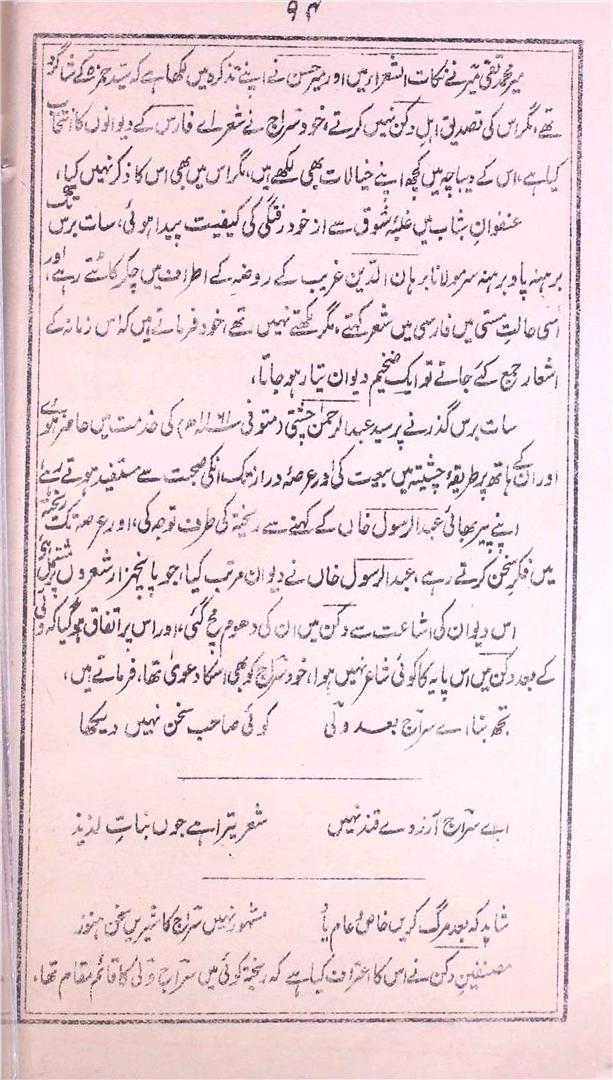 ۹۴
میر محمد تقی میر نے نکات الشعرار میں اور میر حسن نے اپنے تذکرہ میں لکھا ہے کہ سید حمزہ کے شاگرد
تھے، مگر اس کی تصدیق اہل دکن نہیں کرتے، خود سراج نے شعراے فارس کے دیوانوں کا انتخاب
کیا ہے، اس کے دیباچہ میں کچھ اپنے خیالات بھی لکھے ہیں، مگر اس میں بھی اس کا ذکر نہیں کیا،
عنفوانِ شباب میں غلبۂ شوق سے از خود رفتگی کی کیفیت پیدا ہوئی، سات برس تک
برہنہ پا و برہنہ سر مولانا برہان الدین غریب کے روضہ کے اطراف میں چکر کاٹتے رہے، اور
اسی حالتِ مستی میں فارسی میں شعر کہتے، مگر لکھتے نہیں تھے، خود فرماتے ہیں کہ اس زمانہ کے
اشعار جمع کئے جاتے تو ایک ضخیم دیوان تیار ہو جاتا،
سات برس گذرنے پر سید عبد الرحمٰن چشتی (متوفی ۱۱۶۱ھ) کی خدمت میں حاضر ہوئے
اور ان کے ہاتھ پر طریقۂ چشتیہ میں بیعت کی اور عرصۂ دراز تک انکی صحبت سے مستفید ہوتے رہے
اپنے پیر بھائی عبد الرسول خاں کے کہنے سے ریختہ کی طرف توجہ کی، اور عرصہ تک ریختہ
میں فکرِ سخن کرتے رہے، عبد الرسول خاں نے دیوان مرتب کیا، جو پانچہزار شعروں پر مشتمل ہے،
اس دیوان کی اشاعت سے دکن میں ان کی دھوم مچ گئی، اور اس پر اتفاق ہو گیا کہ ولی
کے بعد دکن میں اس پایہ کا کوئی شاعر نہیں ہوا، خود سراج کو بھی اسکا دعویٰ تھا، فرماتے ہیں،
تجھ بنا اے سراج بعد ولی کوئی صاحب سخن نہیں دیکھا
اے سراج آرزوے قند نہیں شعر تیرا ہے جوں نباتِ لذیذ
شاید کہ بعد مرگ کریں خاص و عام یاد مشہور نہیں سراج کا شیریں سخن ہنوز
مصنفینِ دکن نے اس کا اعتراف کیا ہے کہ ریختہ گوئی میں سراج ولی کا قائم مقام تھا،